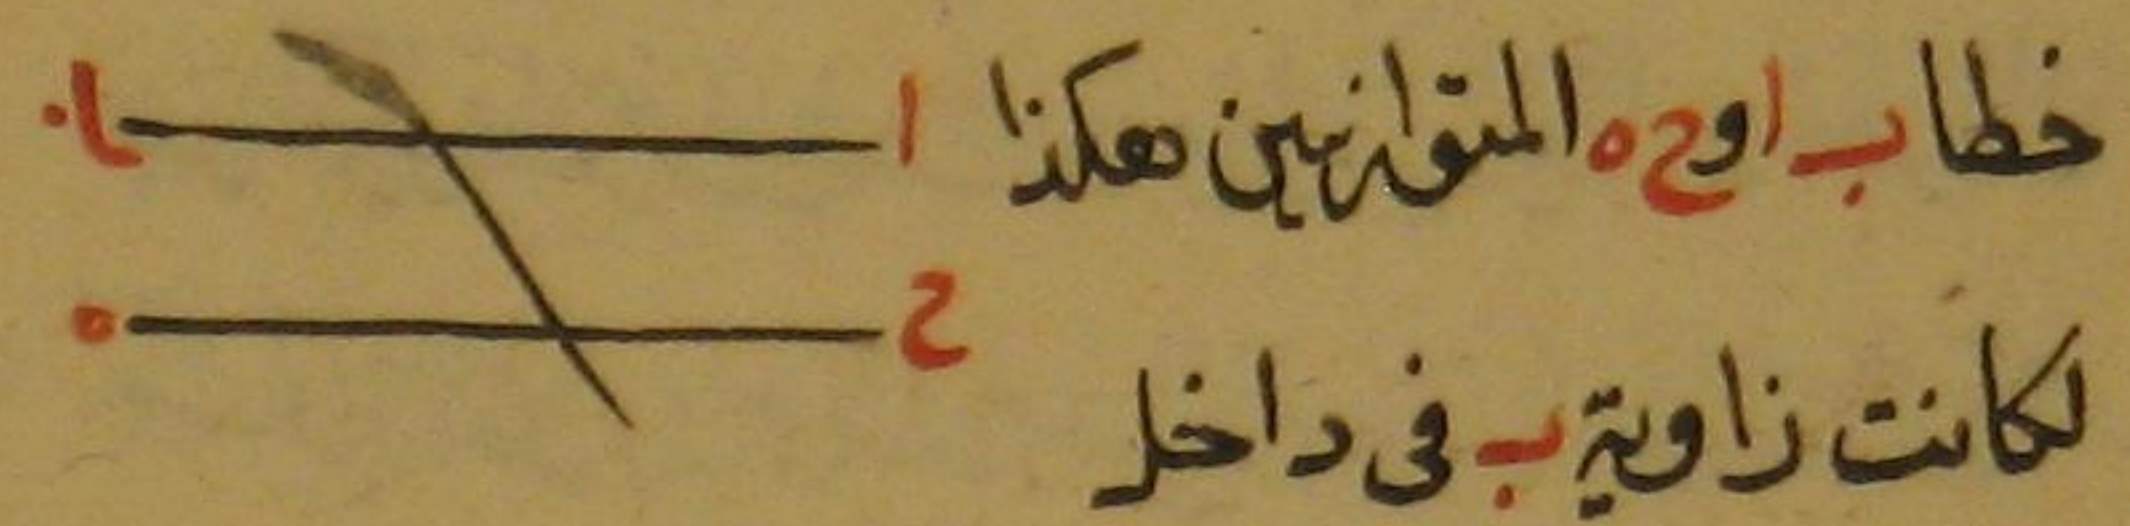 خطا ب ا و ح ه المتوازيين هكذا
ا
ب
ح
ه
لكانت زاوية ب فى داخل